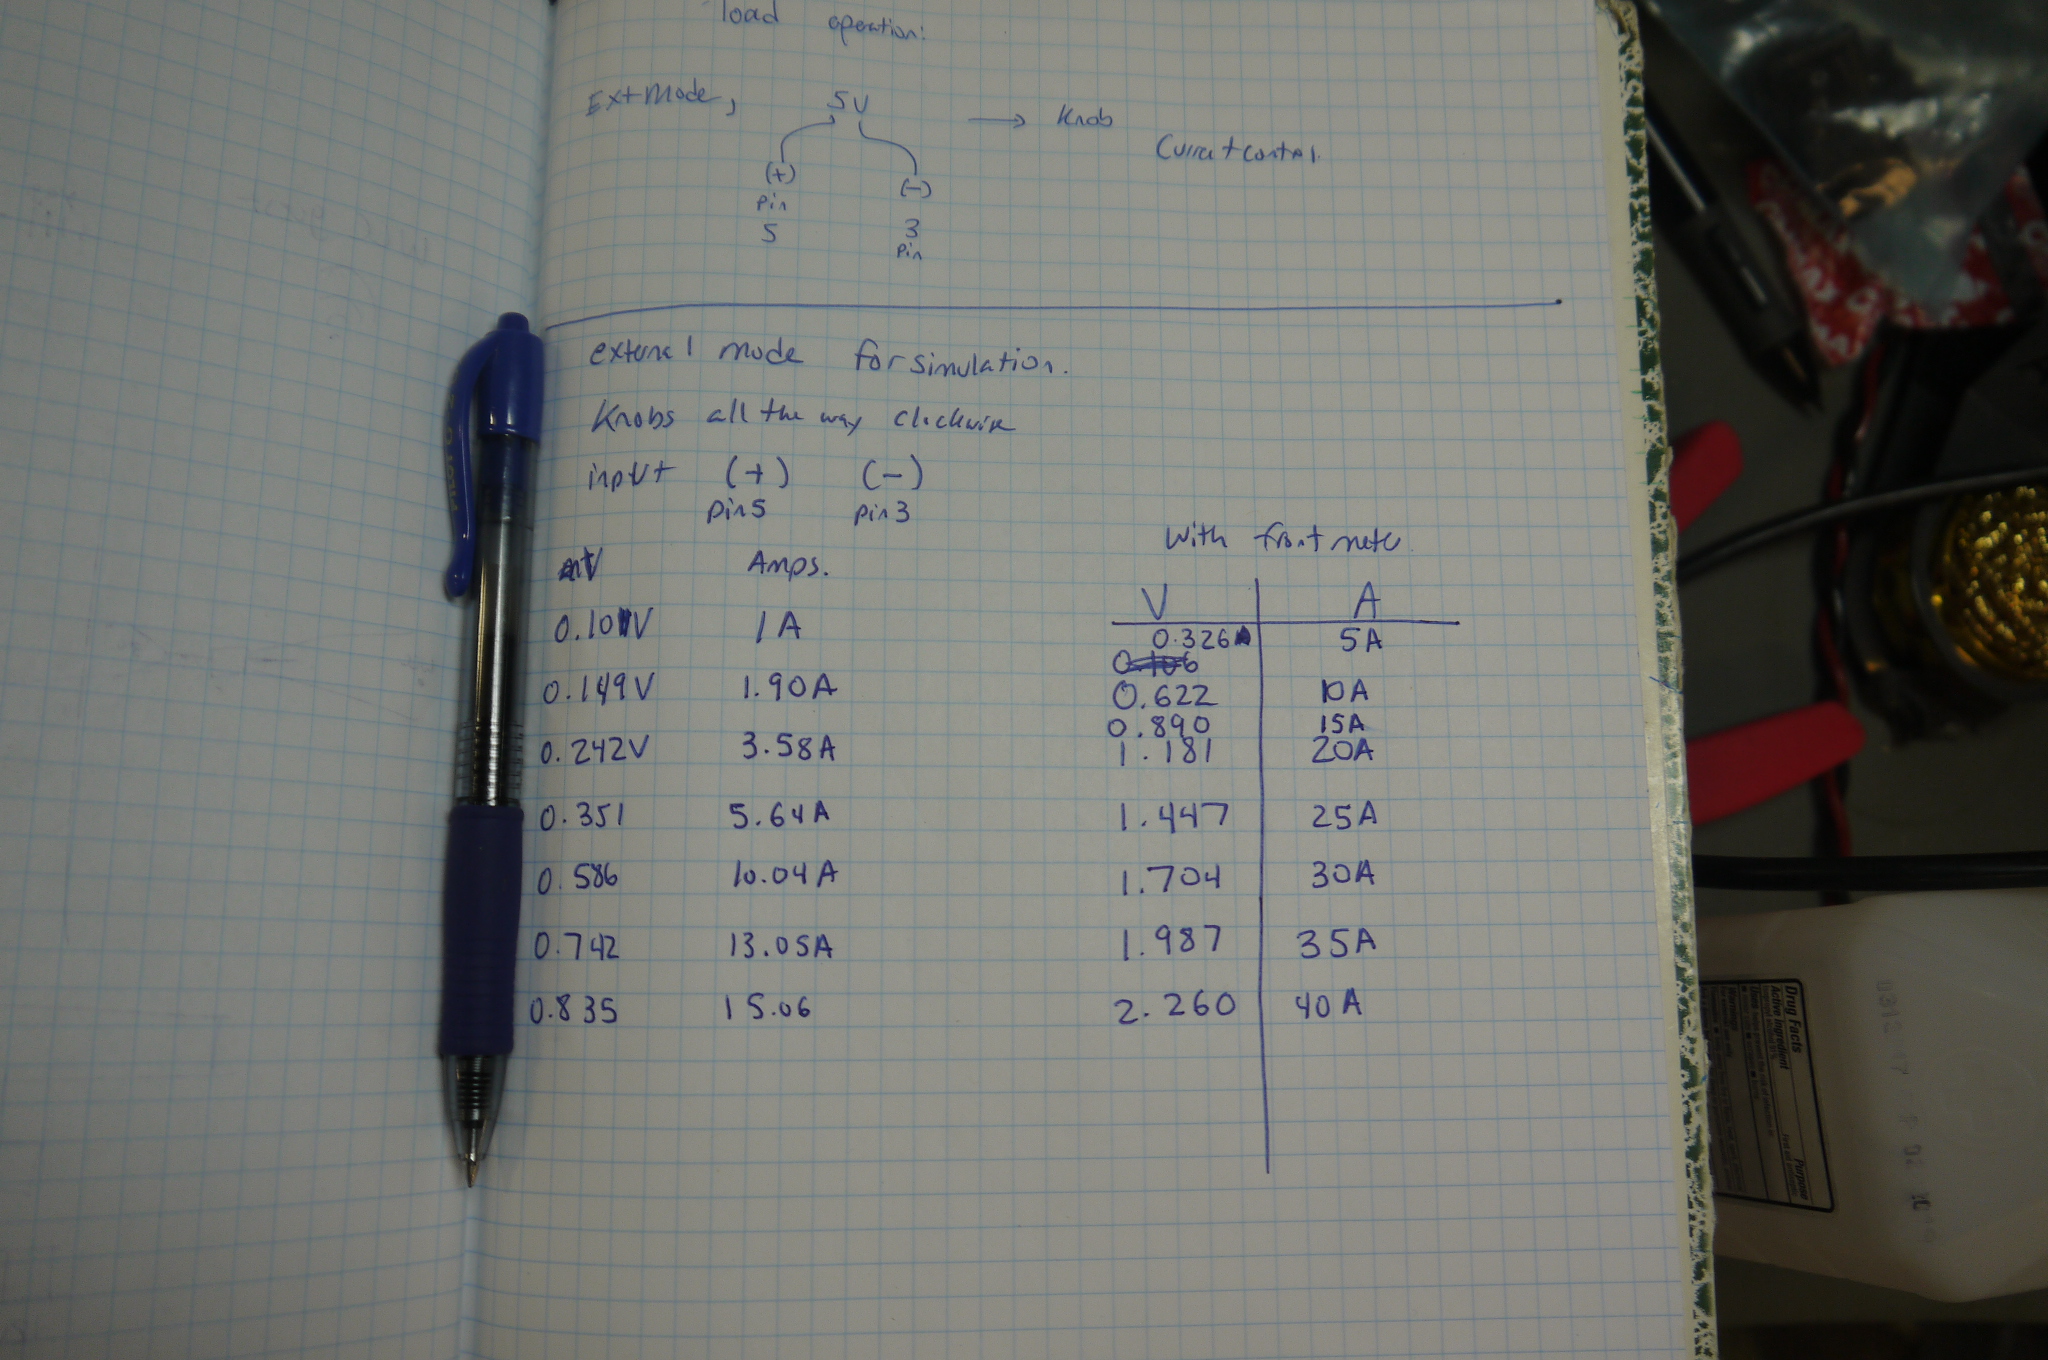 load operation:
Ext Mode, 5V → Knob
Current control.
(+) (-)
pin
5 3
pin
external mode for simulation.
Knobs all the way clockwise
input (+) (-)
pin5 pin3
with front meter
V Amps.
V A
0.10V 1A
0.326 5A
0.149V 1.90A
0.622 10A
0.890 15A
0.242V 3.58A
1.181 20A
0.351 5.64A
1.447 25A
0.586 10.04A
1.704 30A
0.742 13.05A
1.987 35A
0.835 15.06
2.260 40A
Drug Facts
Active ingredient
Purpose